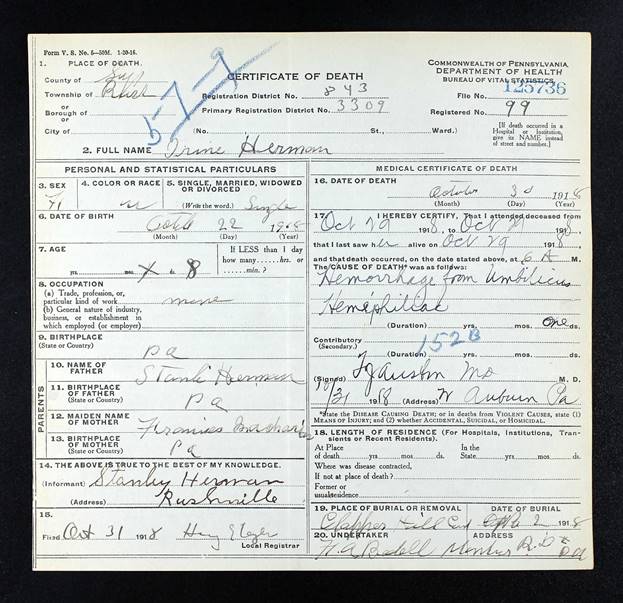 Form V. S. No. 5—50M. 1-20-16.
1. PLACE OF DEATH.
County of
Township of Rush
or
Borough of
or
City of
5-7-9
CERTIFICATE OF DEATH
Registration District No. 843
Primary Registration District No. 3309
(No. St., Ward.)
COMMONWEALTH OF PENNSYLVANIA
DEPARTMENT OF HEALTH
BUREAU OF VITAL STATISTICS
File No. 125736
Registered No. 99
[If death occurred in a Hospital or Institution, give its NAME instead of street and number.]
2. FULL NAME Irine Herman
PERSONAL AND STATISTICAL PARTICULARS
3. SEX
F
4. COLOR OR RACE
W
5. SINGLE, MARRIED, WIDOWED OR DIVORCED
(Write the word.) Single
6. DATE OF BIRTH
22 1918
(Month) (Day) (Year)
7. AGE
yrs. mos. 8 ds.
If LESS than 1 day how many......hrs. or ......min.?
8. OCCUPATION
(a) Trade, profession, or, particular kind of work
(b) General nature of industry, business, or establishment in which employed (or employer)
none
9. BIRTHPLACE
(State or Country)
Pa
PARENTS
10. NAME OF FATHER
Stanle Herman
11. BIRTHPLACE OF FATHER
(State or Country)
Pa
12. MAIDEN NAME OF MOTHER
13. BIRTHPLACE OF MOTHER
(State or Country)
Pa
14. THE ABOVE IS TRUE TO THE BEST OF MY KNOWLEDGE.
(Informant) Stanley Herman
(Address) Rushville
15.
Filed Oct 31 1918
Local Registrar
MEDICAL CERTIFICATE OF DEATH
16. DATE OF DEATH
October 1918
(Month) (Day) (Year)
17. I HEREBY CERTIFY, That I attended deceased from
Oct 29 1918, to Oct 29 1918,
that I last saw her alive on Oct 29 1918,
and that death occurred, on the date stated above, at 6 A M.
The CAUSE OF DEATH* was as follows:
Hemorrhage from Umbilicus
Hemophiliac
(Duration) yrs. mos. one ds.
Contributory
(Secondary.)
152B
(Duration) yrs. mos. ds.
(Signed) Austin MD M. D.
31 1918 (Address) W Auburn Pa
*State the DISEASE CAUSING DEATH; or in deaths from VIOLENT CAUSES, state (1) MEANS OF INJURY; and (2) whether ACCIDENTAL, SUICIDAL, OR HOMICIDAL.
18. LENGTH OF RESIDENCE (For Hospitals, Institutions, Transients or Recent Residents).
At Place of death yrs. mos. ds.
In the State yrs. mos. ds.
Where was disease contracted,
If not at place of death?
Former or usual residence
19. PLACE OF BURIAL OR REMOVAL
Clapper Hill Cem
DATE OF BURIAL
2 1918
20. UNDERTAKER
ADDRESS